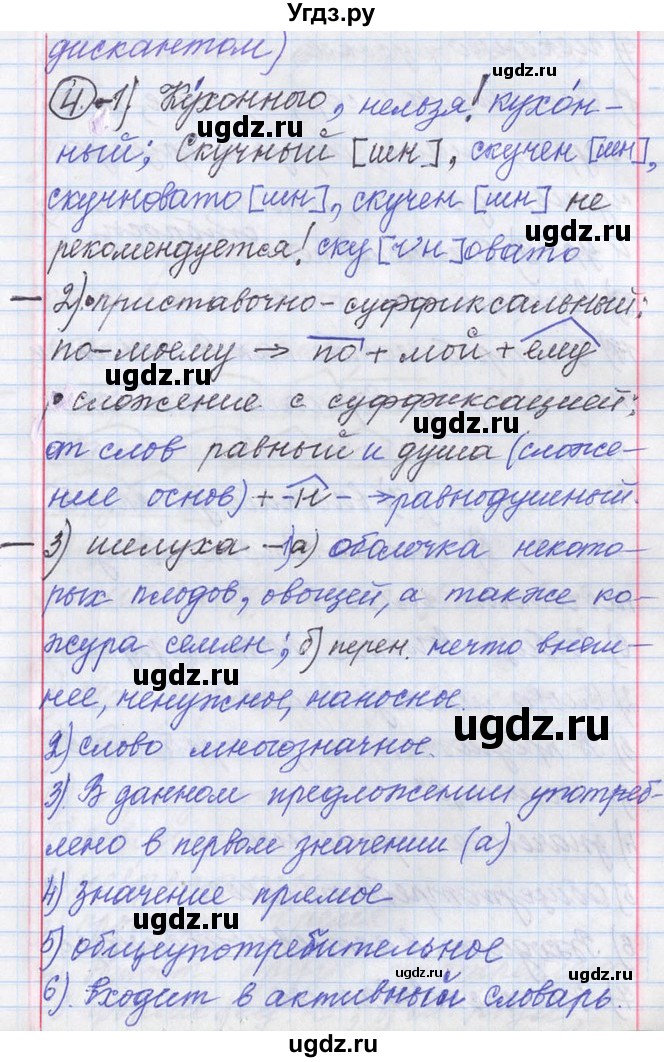 Угдз.ру
дискантом)
ugdz.ru
4. -1) Ку́хонного, нельзя! кухо́н-
ugdz.ru
ный; Скучный [шн], скучен [шн],
скучновато [шн], скучен [шн] не
ugdz.ru ugdz.ru
рекомендуется! ску[чн]овато
— 2)•приставочно-суффиксальный:
по-моему → по + мой + ему
ugdz.ru
• сложение с суффиксацией:
от слов равный и душа (сложе-
ugdz.ru
ние основ) + -н- → равнодушный.
ugdz.ru
— 3) шелуха - 1) а) оболочка некото-
рых плодов, овощей, а также ко-
жура семян; б) перен. нечто внеш-
ugdz.ru
нее, ненужное, наносное.
ugdz.ru
2) слово многозначное.
3) В данном предложении употреб-
ugdz.ru
лено в первом значении (а)
4) значение прямое
ugdz.ru
5) общеупотребительное
ugdz.ru
6). входит в активный словарь.
ugdz.ru